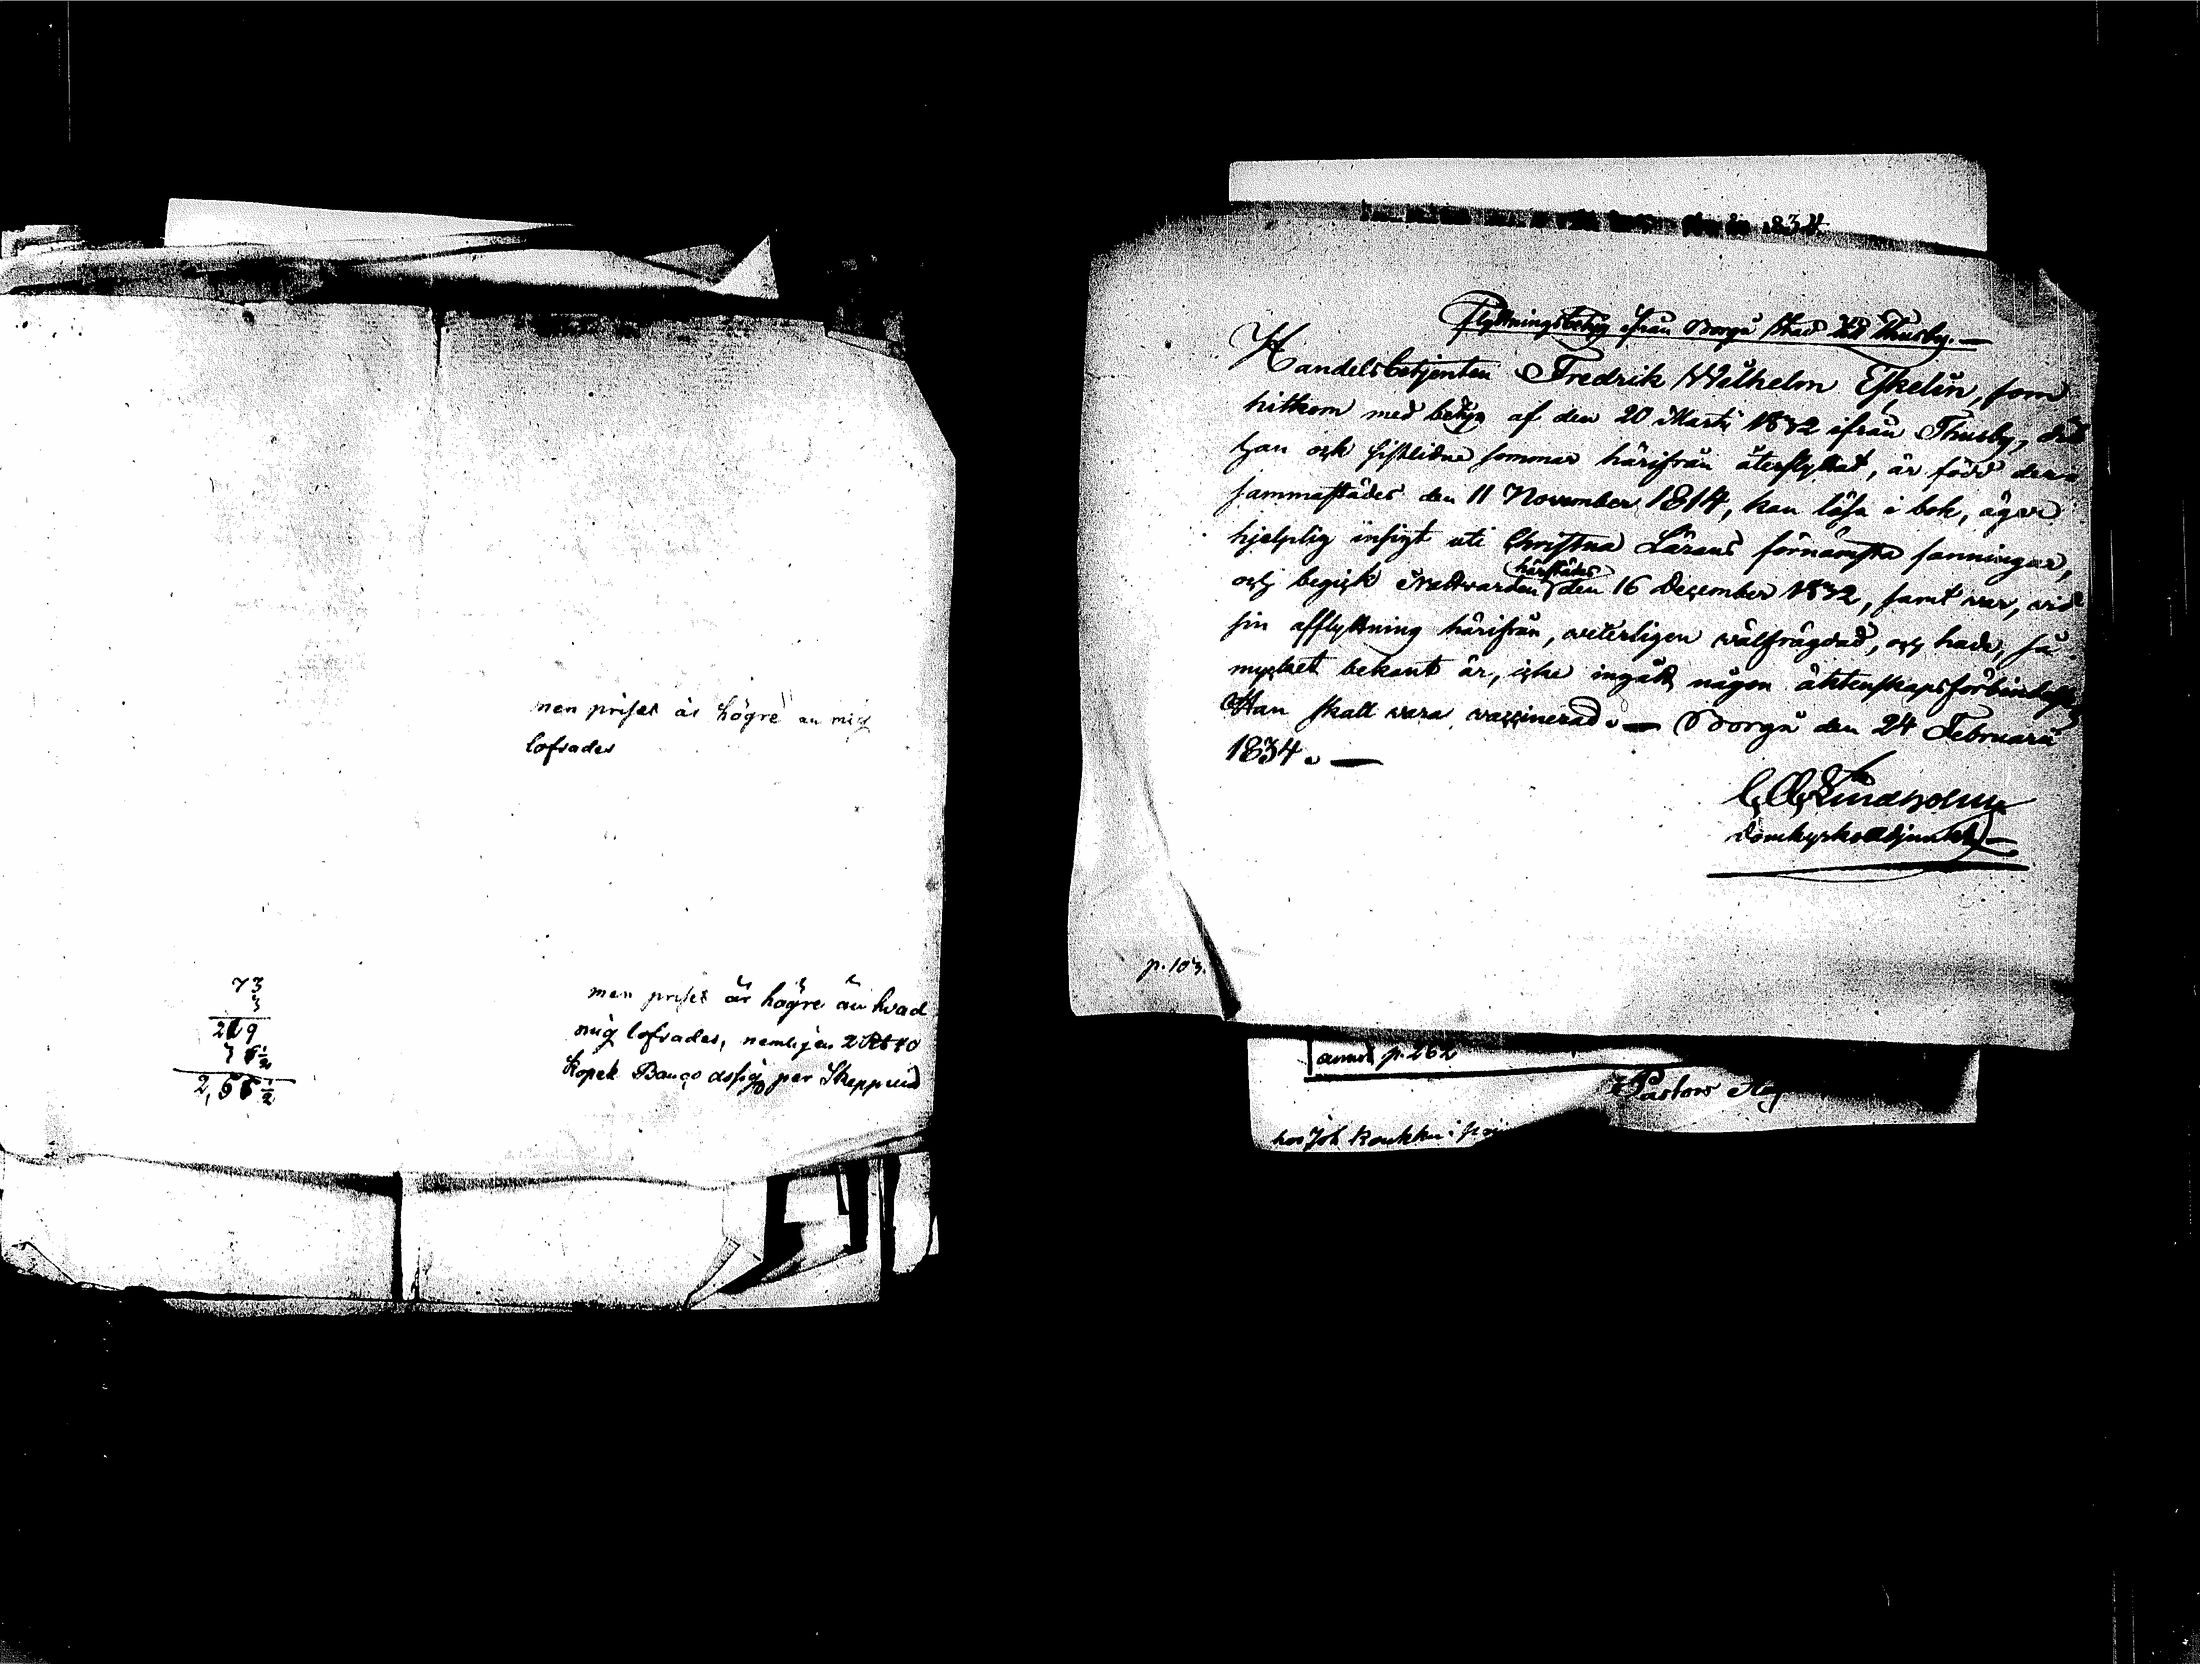 men priset är högre än mig
lofvades
73
3
219
7 6½
2,66½
men priset är högre än hvad
mig lofvades, nemligen 2 Rb 40
Kopek Banco assig per Skeppund
1834.
Flyttningsbetyg ifrån Borgå stad till Thusby. —
Handelsbetjenten Fredrik Wilhelm Eskelin, som
hitkom med betyg af den 20 Martii 1832 ifrån Thusby, dit
han ock sistlidne sommar härifrån återflyttat, är född der=
sammastädes den 11 November 1814, kan läsa i bok, äger
hjelplig insigt uti Christna Lärans förnämsta sanningar,
och begick Nattvarden härstädes den 16 December 1832, samt war, vid
sin afflyttning härifrån, veterligen wälfrägdad, och hade, så
mycket bekant är, icke ingått någon äktenskapsförbindelse.
Han skall vara vaccinerad. — Borgå den 24 Februarii
1834. —
Lindholm
Domkyrkoadjunkt
p. 103.
p. 262
Pastor
hos Joh